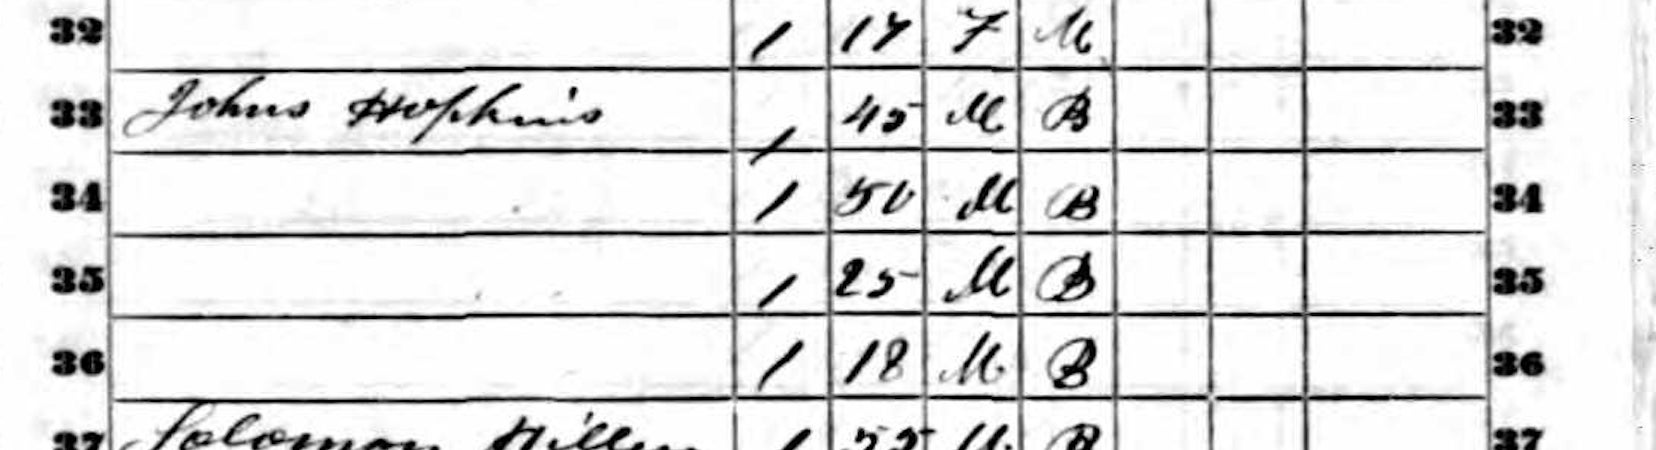 32 1 17 F M 32
33 Johns Hopkins 1 45 M B 33
34 1 50 M B 34
35 1 25 M B 35
36 1 18 M B 36
37 Solomon Hillen 1 55 M B 37